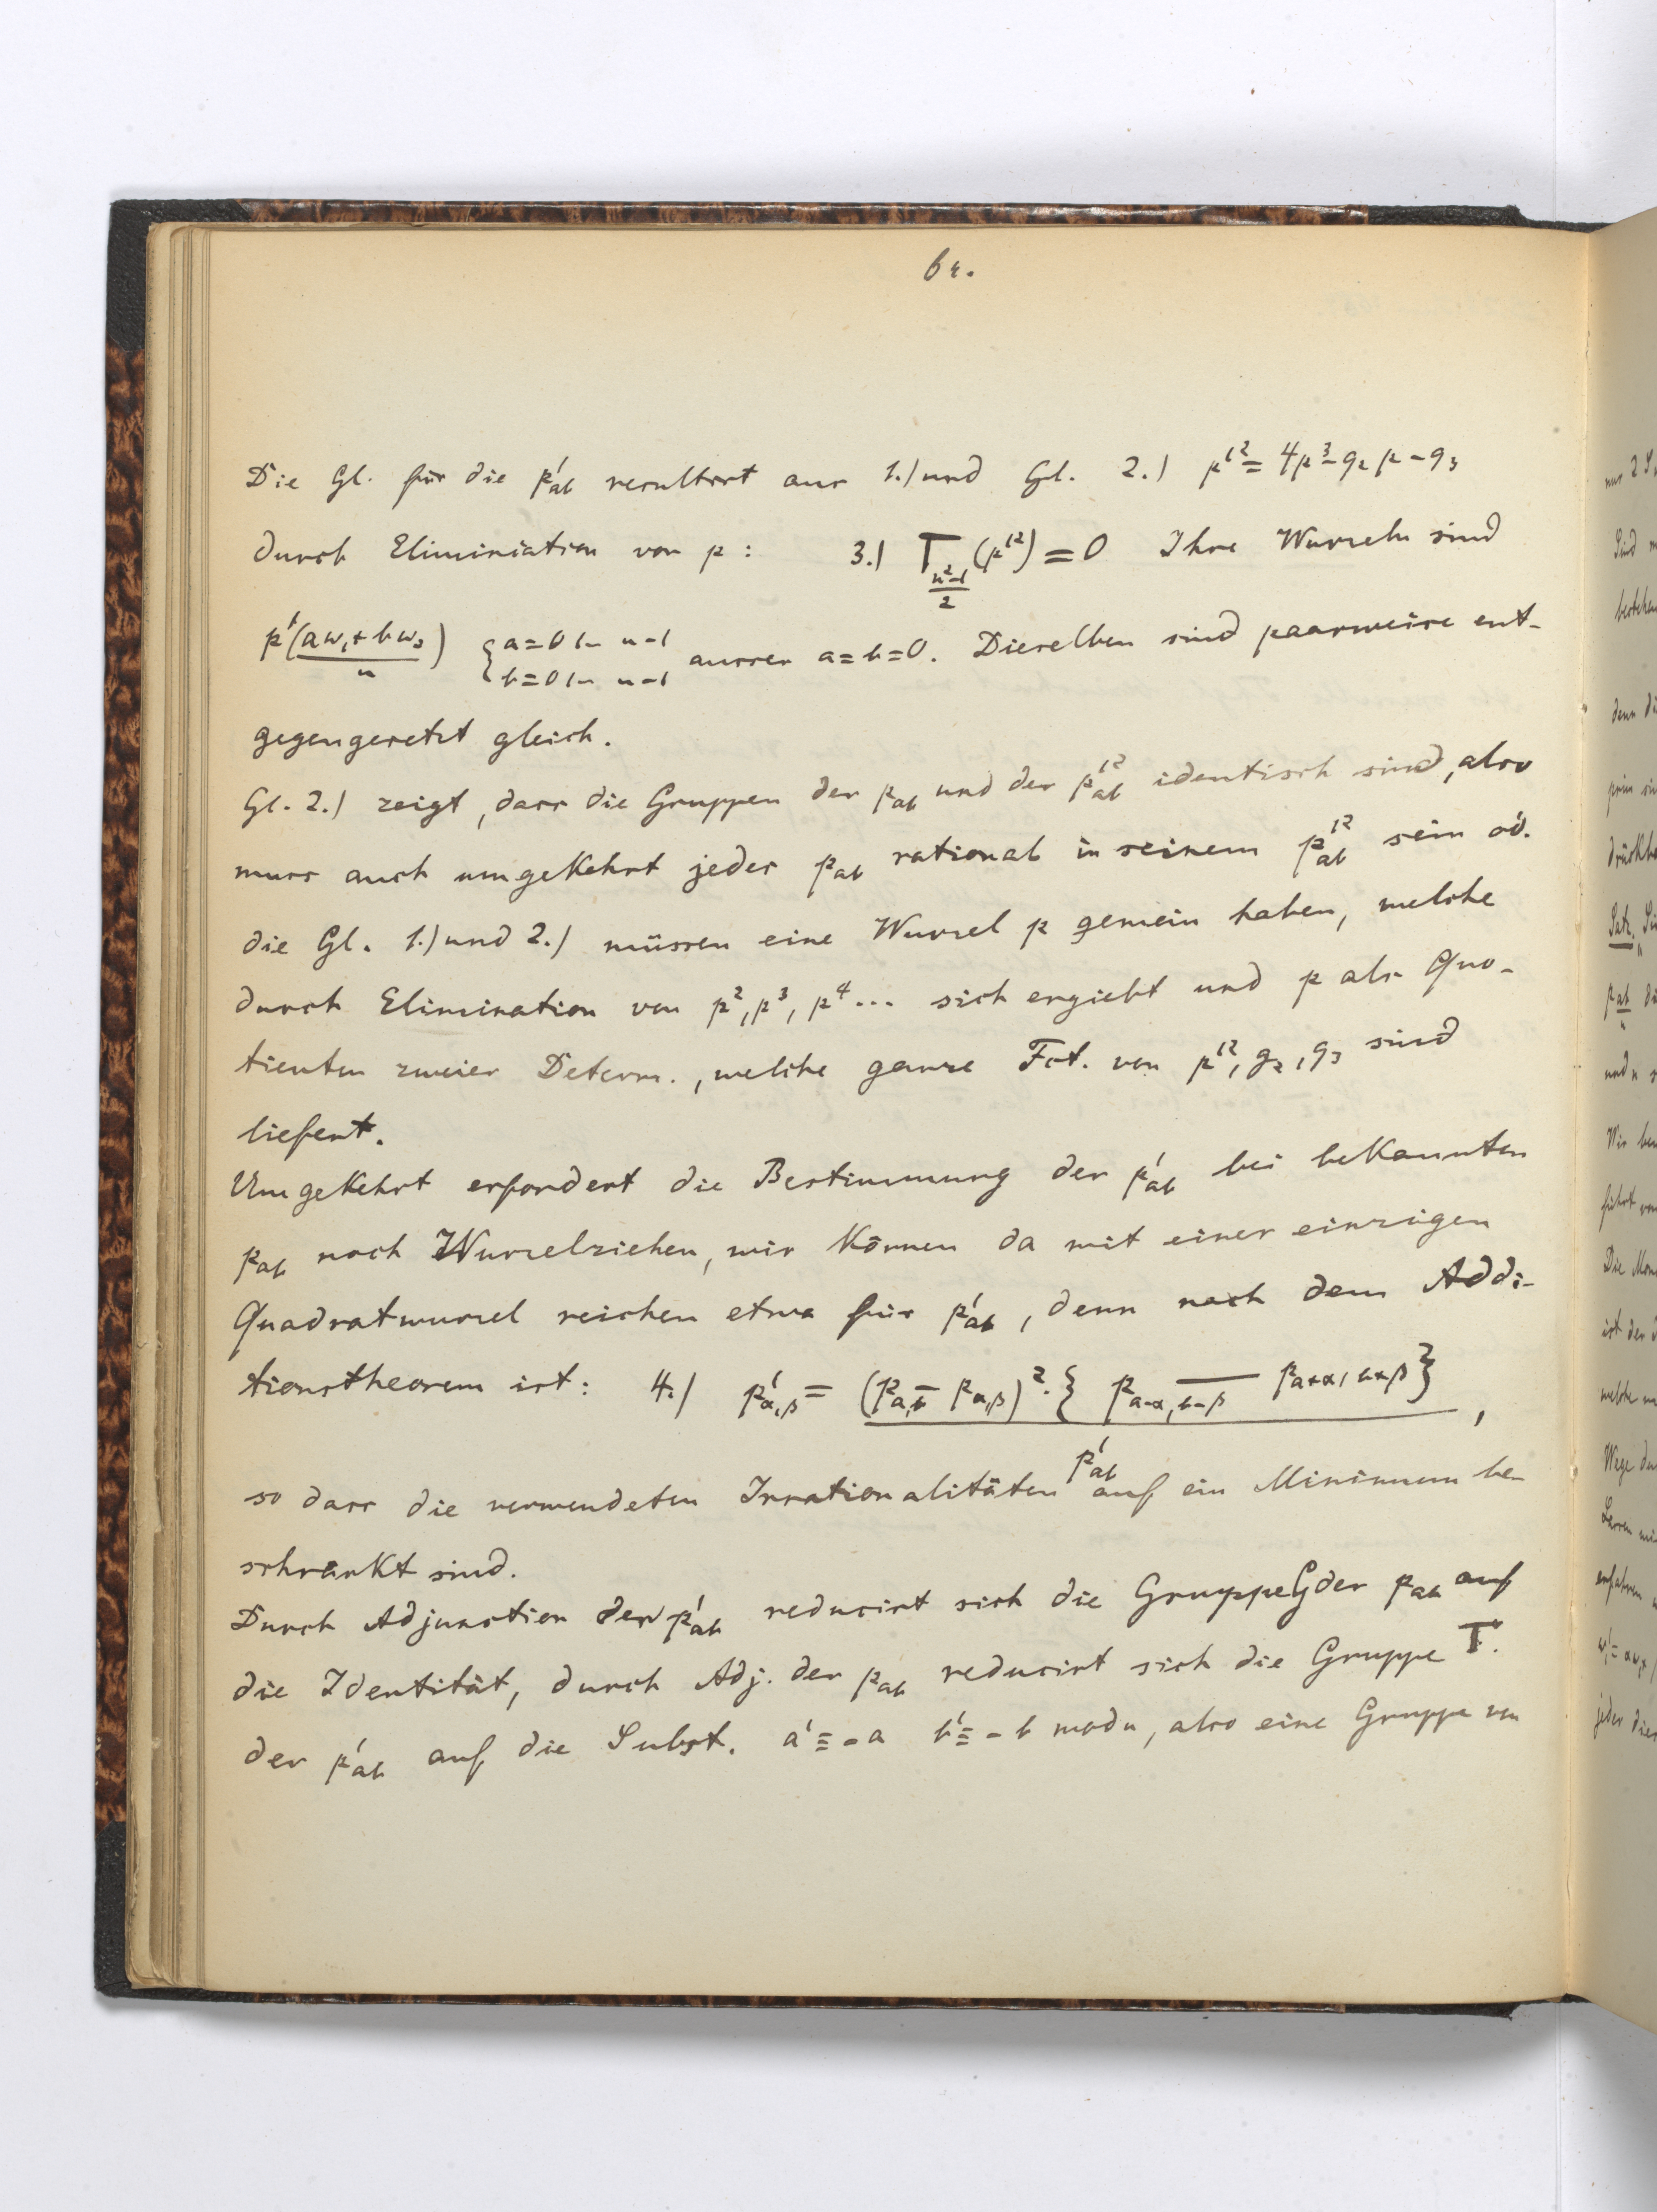 62.
Die Gl. für die p'ab resultirt aus 1.) und Gl. 2.) p'² = 4p³ - g₂p - g₃
durch Eliminiation von p: 3.) T_{(n²-1)/2}(p'²) = 0 Ihre Wurzeln sind
p'((aω₁ + bω₃)/n) { a = 0 1 – n-1 ausser a = b = 0. Dieselben sind paarweise ent-
b = 0 1 – n-1
gegengesetzt gleich.
Gl. 2.) zeigt, dass die Gruppen der pab und der p'²ab identisch sind, also
muss auch umgekehrt jedes pab rational in seinem p'²ab sein od.
die Gl. 1.) und 2.) müssen eine Wurzel p gemein haben, welche
durch Elimination von p², p³, p⁴ ... sich ergiebt und p als Quo-
tienten zweier Determ., welche ganze Fct. von p'², g₂, g₃ sind
liefert.
Umgekehrt erfordert die Bestimmung der p'ab bei bekannten
pab noch Wurzelziehen, wir können da mit einer einzigen
Quadratwurzel reichen etwa für p'ab, denn nach dem Addi-
tionstheorem ist: 4.) p'α,β = (pa,b - pα,β)². { pa-α, b-β — pa+α, b+β } ,
p'ab
so dass die verwendeten Irrationalitäten auf ein Minimum be-
schränkt sind.
Durch Adjunction der p'ab reducirt sich die Gruppe G der pab auf
die Identität, durch Adj. der pab reducirt sich die Gruppe T.
der p'ab auf die Subst. a' ≡ -a b' ≡ -b mod n, also eine Gruppe von